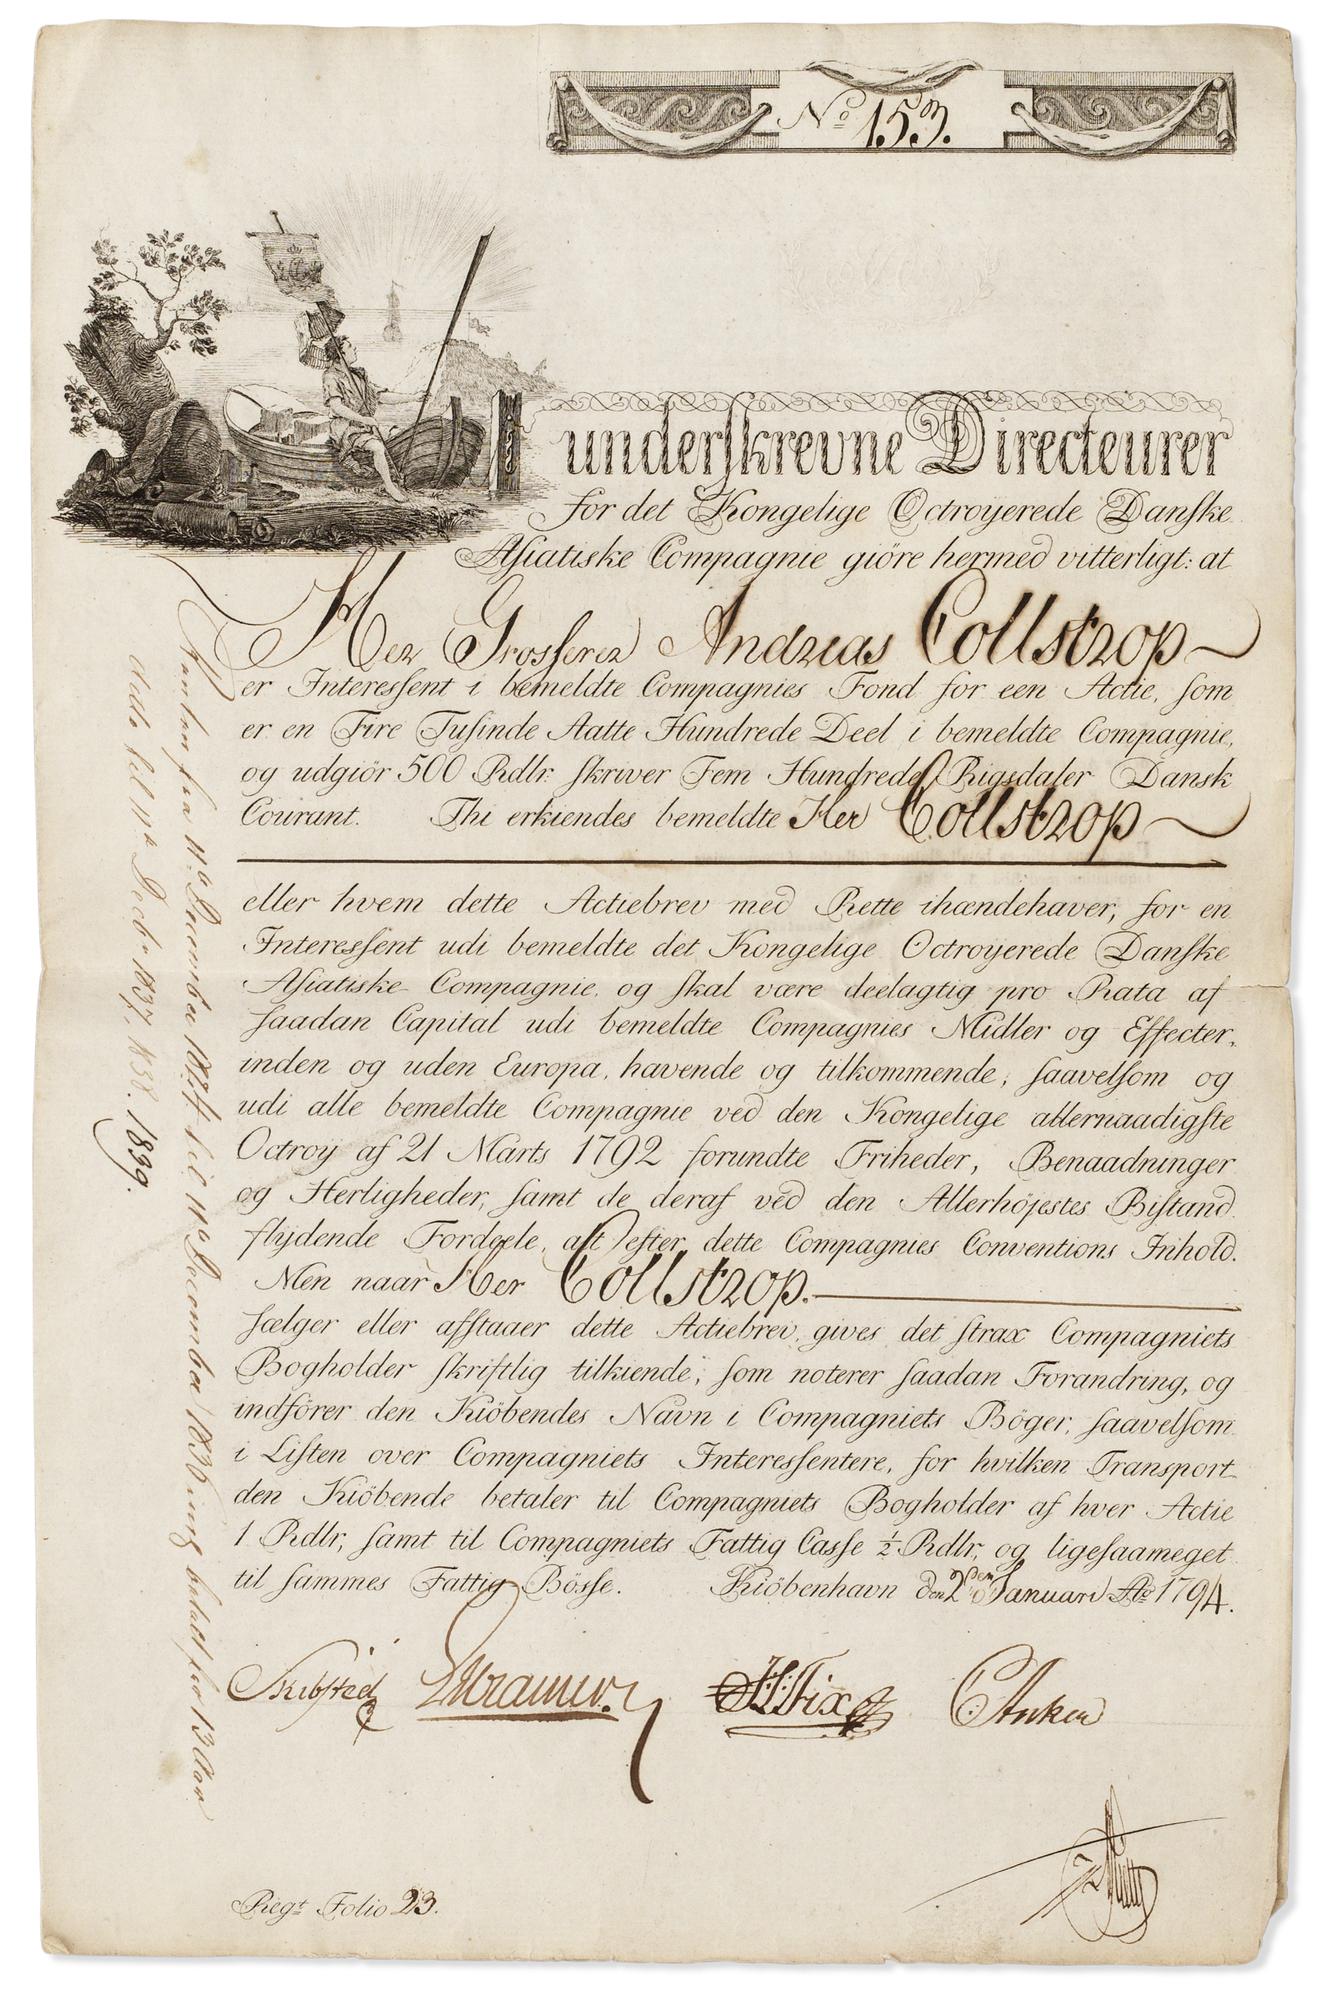 No 153.
underſkrevne Directeurer
for det Kongelige Octroyerede Danſke
Aſiatiske Compagnie giöre hermed vitterligt: at
Her Grosſerer Andreas Collstrop
er Intereſsent i bemeldte Compagnies Fond for een Actie, ſom
er en Fire Tuſinde Aatte Hundrede Deel i bemeldte Compagnie,
og udgiör 500 Rdlr. ſkriver Fem Hundrede Rigsdaler Danſk
Courant. Thi erkiendes bemeldte Her Collstrop
eller hvem dette Actiebrev med Rette ihændehaver, for en
Intereſsent udi bemeldte det Kongelige Octroyerede Danſke
Aſiatiske Compagnie, og ſkal være deelagtig pro Rata af
ſaadan Capital udi bemeldte Compagnies Midler og Effecter,
inden og uden Europa, havende og tilkommende, ſaavelſom og
udi alle bemeldte Compagnie ved den Kongelige allernaadigſte
Octroy af 21 Marts 1792 forundte Friheder, Benaadninger
og Herligheder, ſamt de deraf ved den Allerhöjestes Biſtand
flydende Fordeele, alt efter dette Compagnies Conventions Inhold.
Men naar Her Collstrop.
ſælger eller afſtaaer dette Actiebrev, gives det ſtrax Compagniets
Bogholder ſkriftlig tilkiende, ſom noterer ſaadan Forandring, og
indförer den Kiöbendes Navn i Compagniets Böger, ſaavelſom
i Liſten over Compagniets Intereſsentere, for hvilken Transport
den Kiöbende betaler til Compagniets Bogholder af hver Actie
1 Rdlr, ſamt til Compagniets Fattig Casſe ½ Rdlr, og ligeſaameget
til ſammes Fattig Bösſe. Kiöbenhavn den 2den Januari Ao 1794.
Skibsted Kramer. Fix C Anker
Regt Folio 23.
Renten fra 11te December 1824 til 11te December 1836 betalt for 13 Aar
dito til 11te Decbr 1837, 1838. 1839.